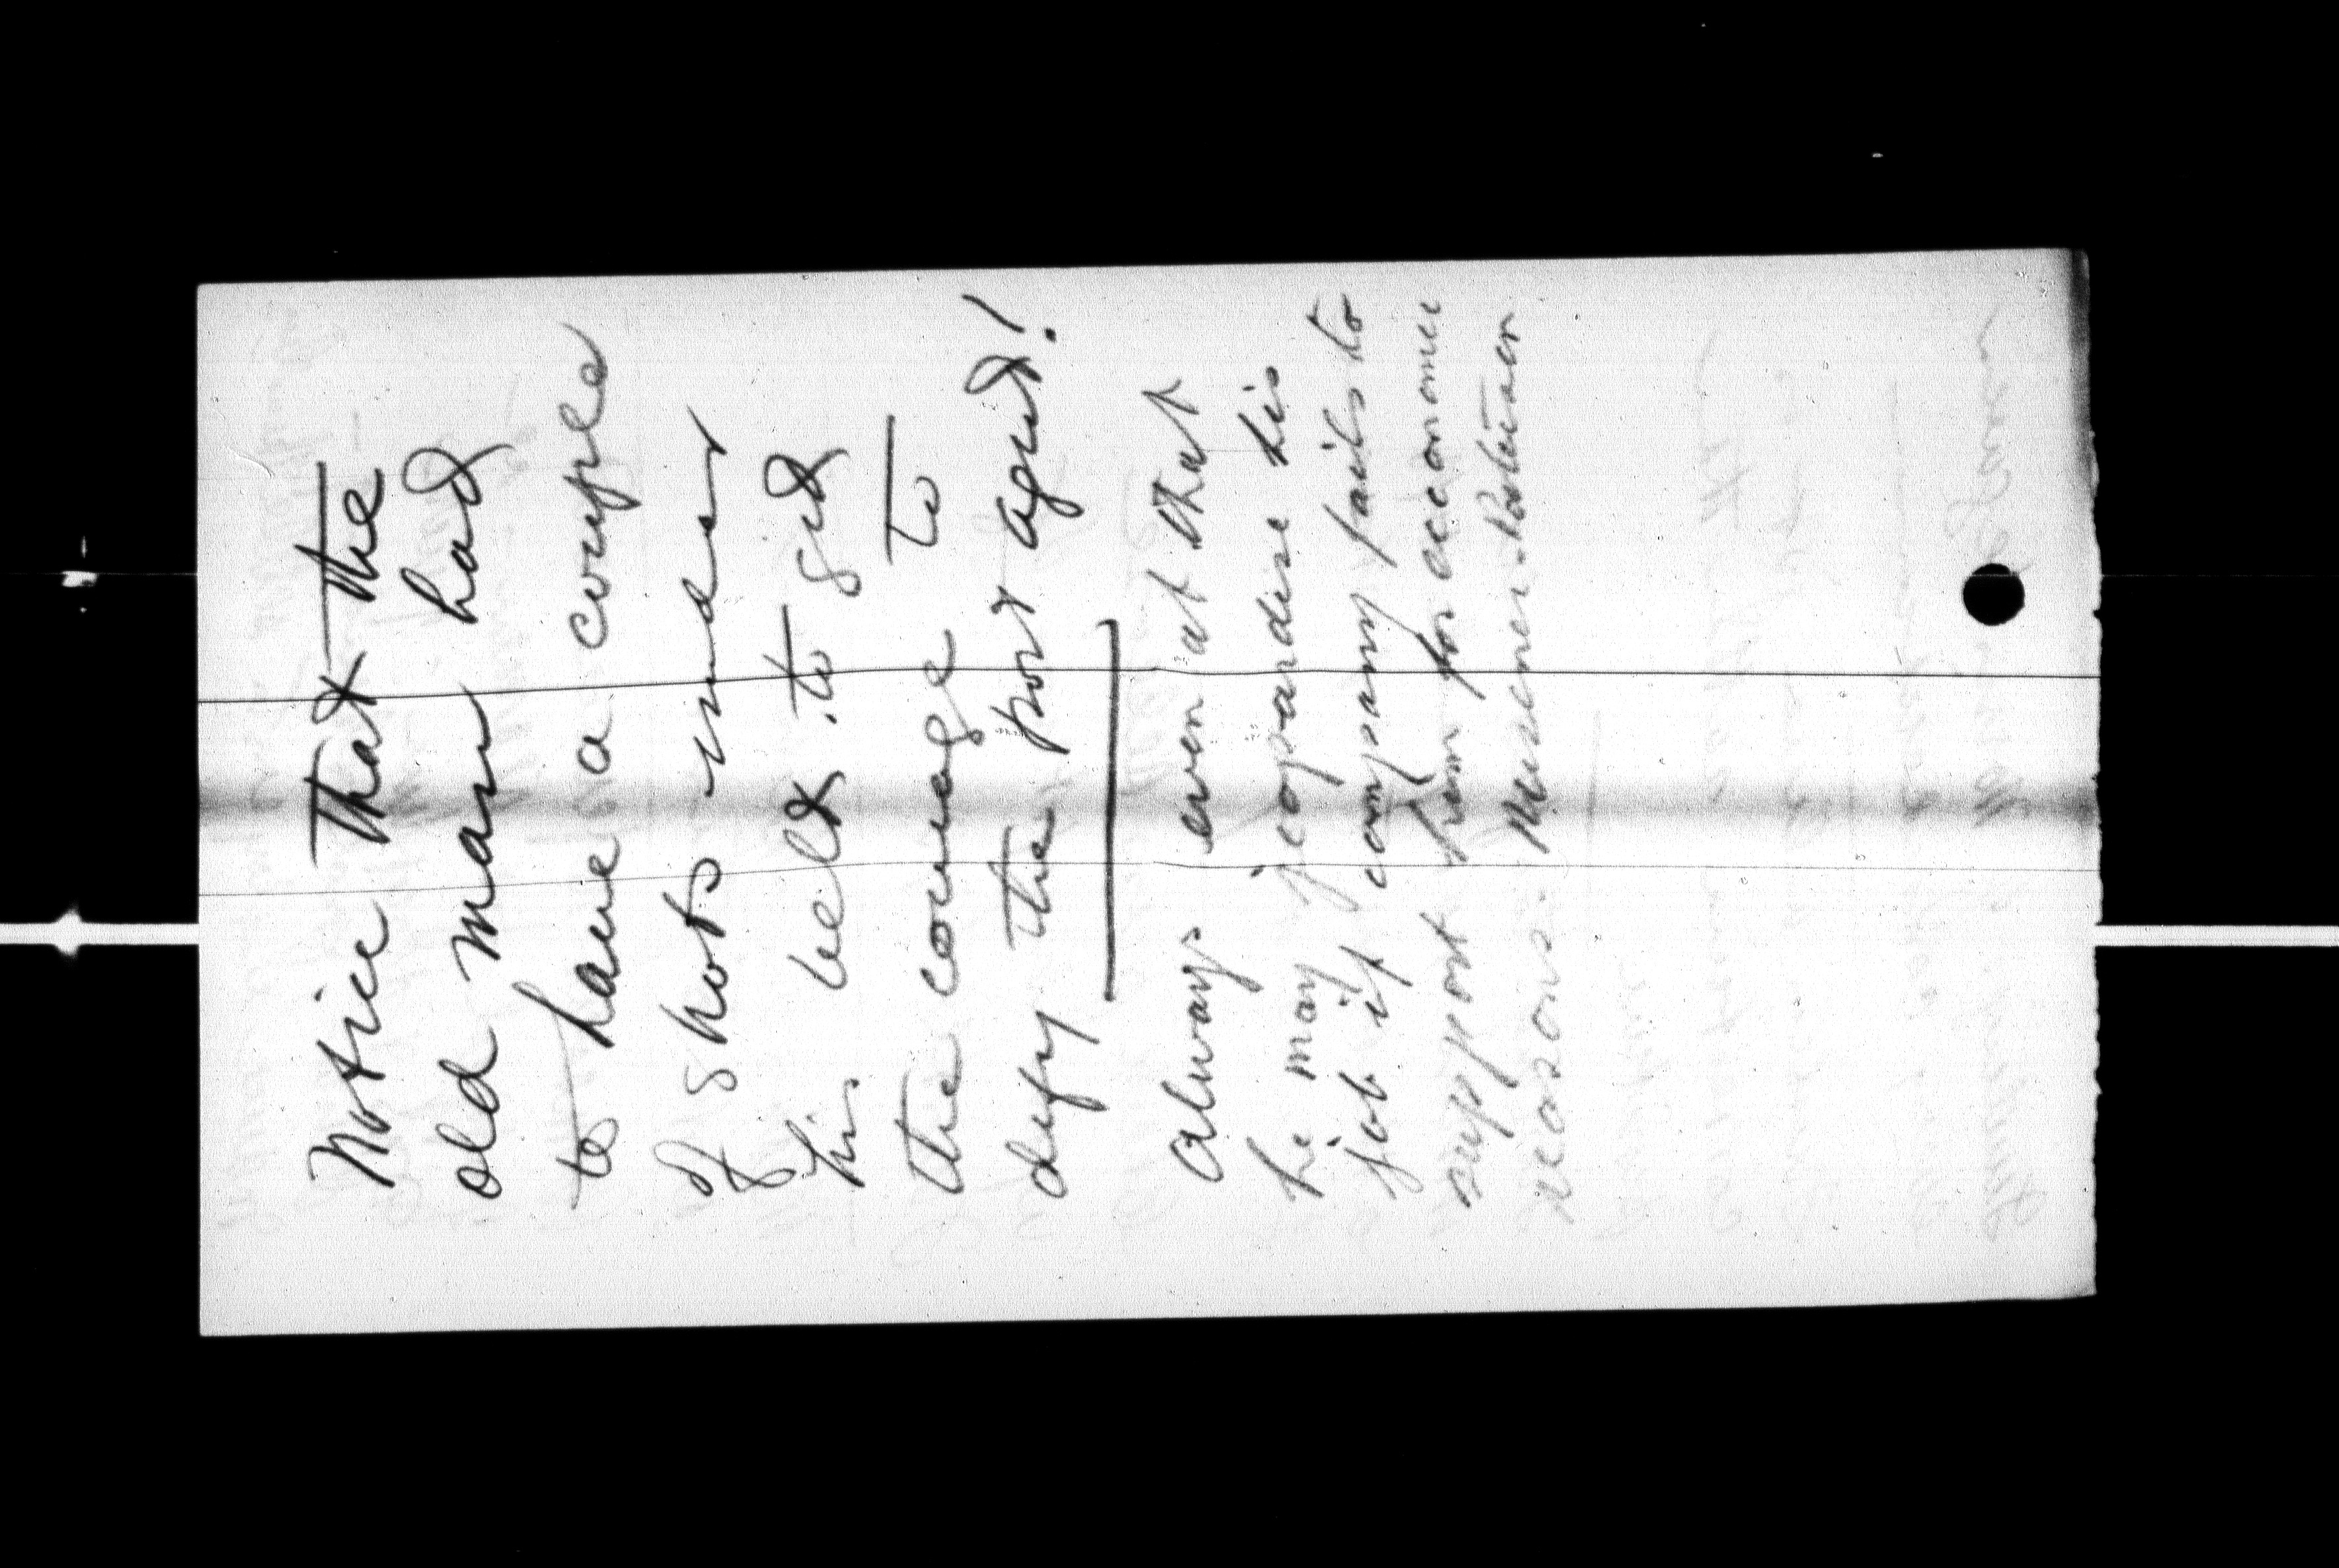 Notice that the
old man had
to have a couple
of shots under
his belt to get
the courage to
defy the port agent!
Always even at that
he may jeopardise his
job if company fails to
support him for economic
reasons.